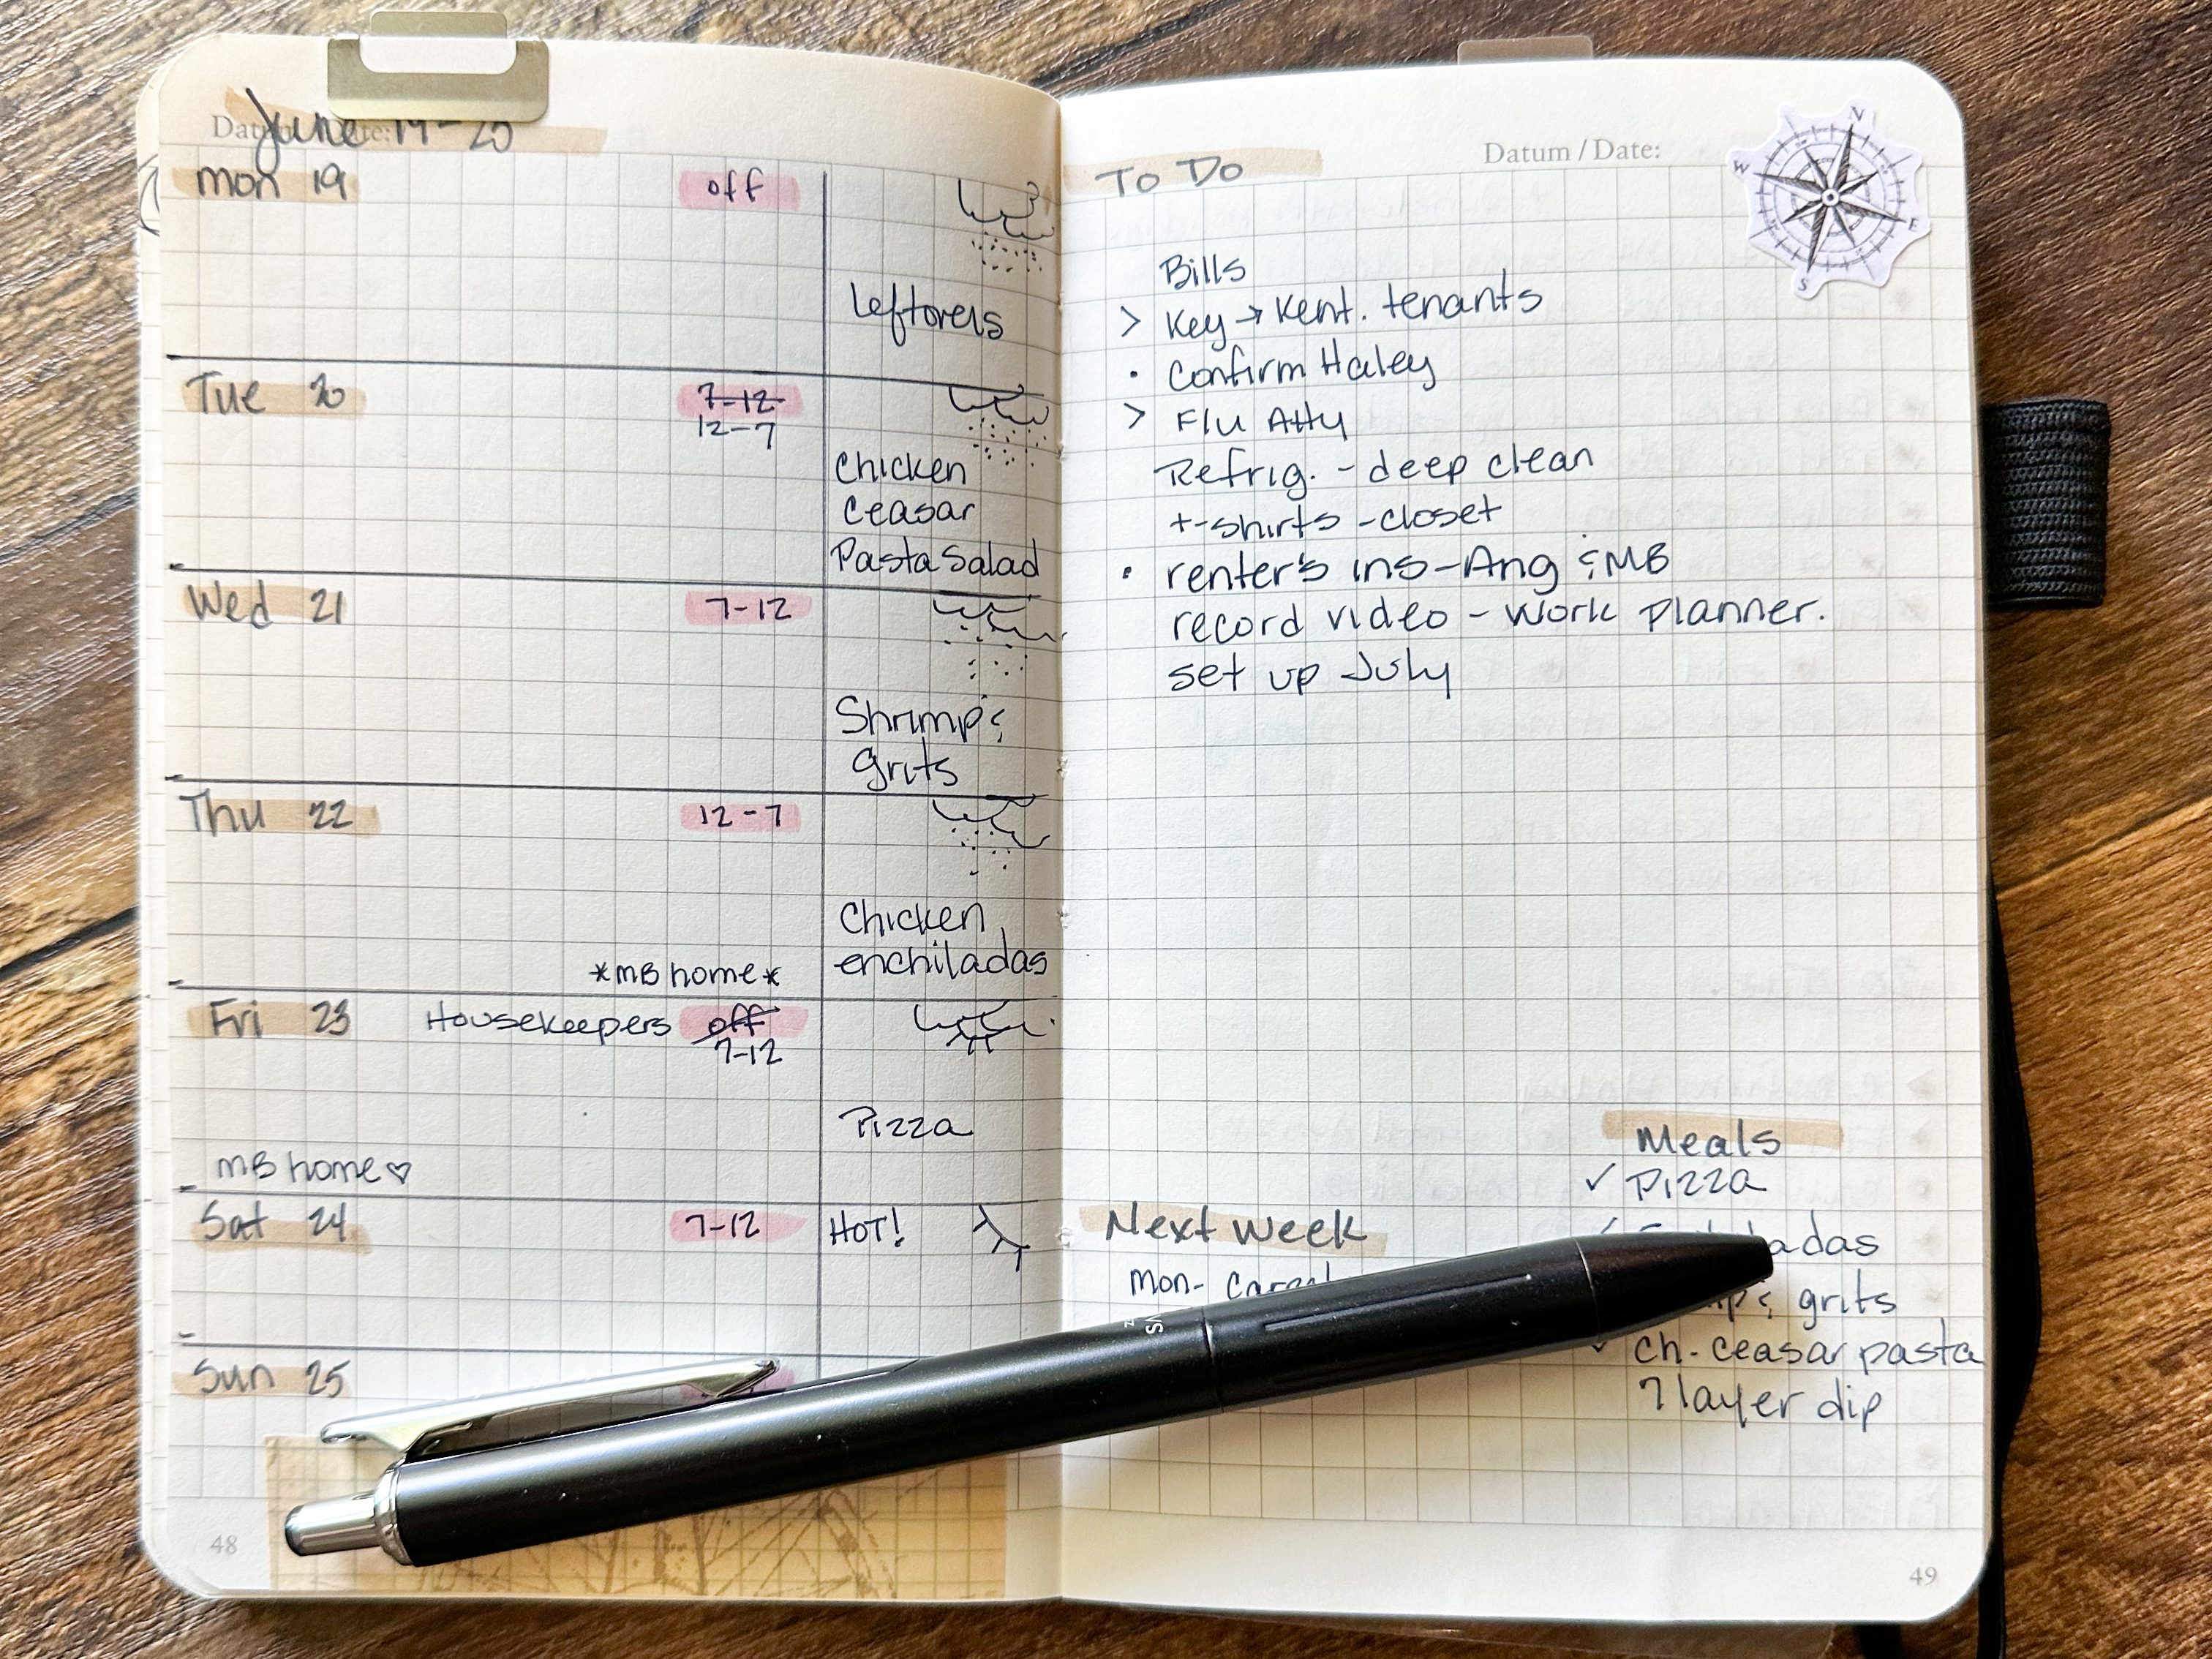 Datum / Date:
June 19-25
mon 19
off
Leftovers
Tue 20
7-12
12-7
Chicken
Ceasar
Pasta Salad
Wed 21
7-12
Shrimp &
grits
Thu 22
12-7
Chicken
enchiladas
*MB home*
Fri 23
Housekeepers
off
7-12
Pizza
MB home♡
Sat 24
7-12
HOT!
Sun 25
48
Datum / Date:
N
W
E
S
To Do
Bills
> Key → Kent. tenants
• Confirm Haley
> Flu Atty
Refrig. - deep clean
t-shirts - closet
• renter's ins - Ang & MB
record video - work planner.
set up July
Meals
✓ Pizza
Next Week
mon-
grits
✓ Ch. ceasar pasta
7 layer dip
49